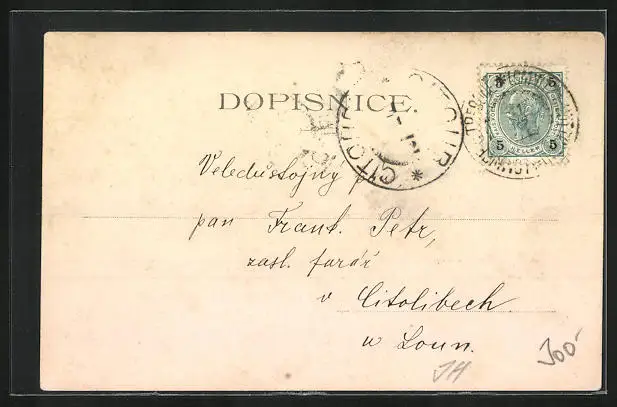 DOPISNICE.
5 5
HELLER
Veledůstojný p
pan Frant. Petr,
zasl. farář
v Citolibech.
u Loun.
JH
300-